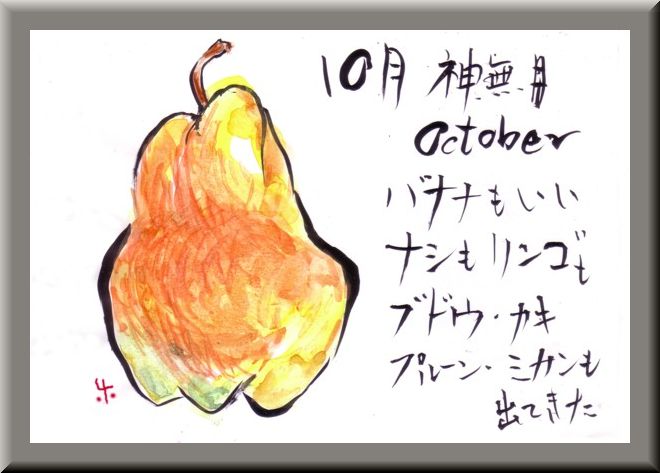 10月 神無月
October
バナナもいい
ナシもリンゴも
ブドウ・カキ
プルーン・ミカンも
出てきた